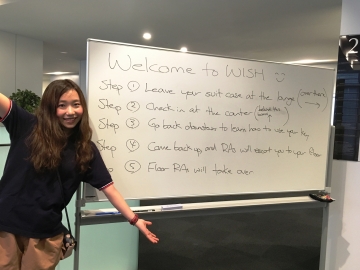 Welcome to WISH
Step ① Leave your suit case at the (over there)
Step ② Check in at the counter (behind this
Step ③ Go back downstairs to learn how to use your key
Step ④ Come back up, and RAs will escort you to your floor
Step ⑤ Floor RAs will take over
2